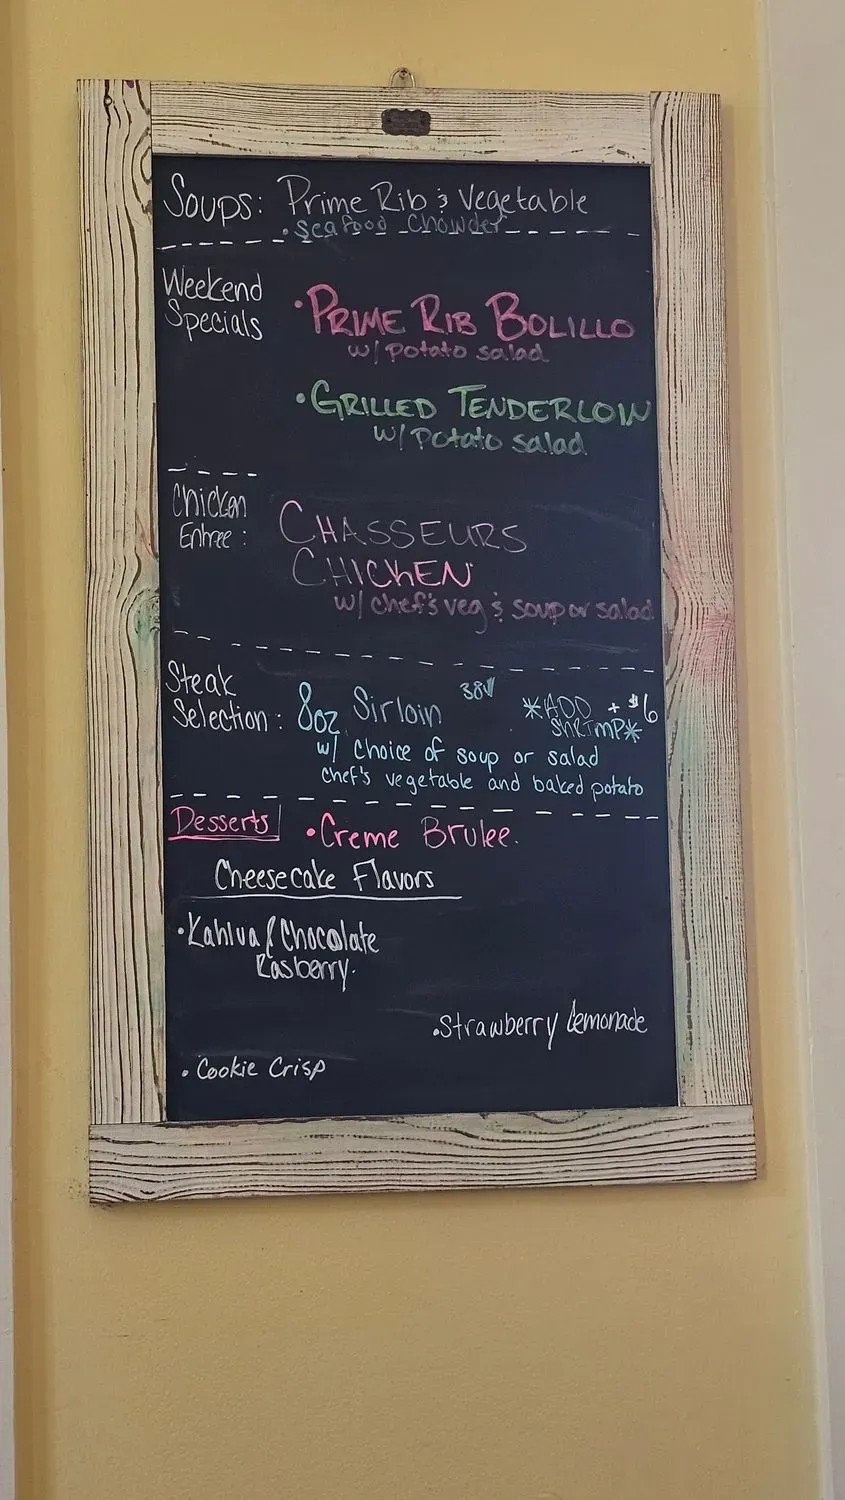 Soups: Prime Rib & Vegetable
• Seafood Chowder
Weekend
Specials
• PRIME RIB BOLILLO
w/ potato salad
• GRILLED TENDERLOIN
w/ Potato salad
Chicken
Entree :
CHASSEURS
CHICKEN
w/ chef's veg & soup or salad
Steak
Selection : 8oz Sirloin
*ADD + $6
SHRIMP*
w/ choice of soup or salad
chef's vegetable and baked potato
Desserts • Creme Brulee.
Cheesecake Flavors
• Kahlua & Chocolate
Rasberry.
• Strawberry Lemonade
• Cookie Crisp